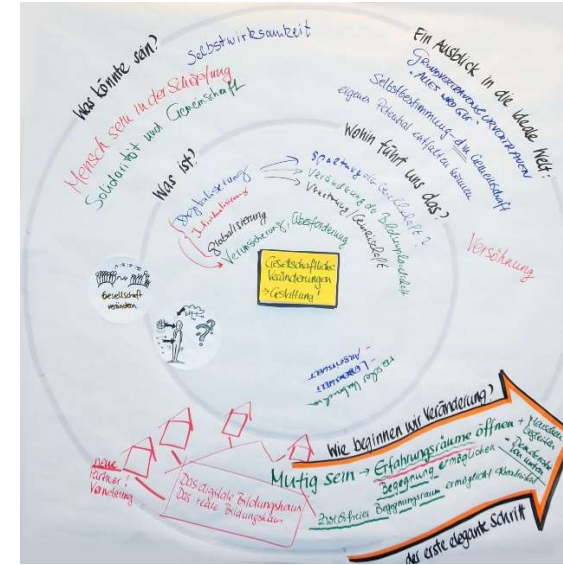 Was könnte sein?
Selbstwirksamkeit
Mensch sein in der Schöpfung
Solidarität und Gemeinschaft
Ein Ausblick in die ideale Welt:
GRUNDVERTRAUEN, URVERTRAUEN
"ALLES WIRD GUT"
Selbstbestimmung – din Gemeinschaft
eigenes Potential entfalten können
Versöhnung
Was ist?
Digitalisierung
Individualisierung
Globalisierung
Verunsicherung, Überforderung
Wohin führt uns das?
Spaltung der Gesellschaft?
Veränderung der Bildungslandschaft
Vernetzung/Gemeinschaft
Gesellschaftliche
Veränderungen
→Gestaltung!
Gesellschaft
verändern
rascher Umbruch
- LEBENSWELT
- ARBEITSWELT
neue
Partner!
Vernetzung
Das digitale Bildungshaus
Das reale Bildungshaus
Wie beginnen wir Veränderung?
Mutig sein → Erfahrungsräume öffnen
Begegnung ermöglichen
Zweckfreier Begegnungsraum ermöglicht Kreativität
+ Menschen
begleiten
- Demokratie
von unten
der erste elegante Schritt